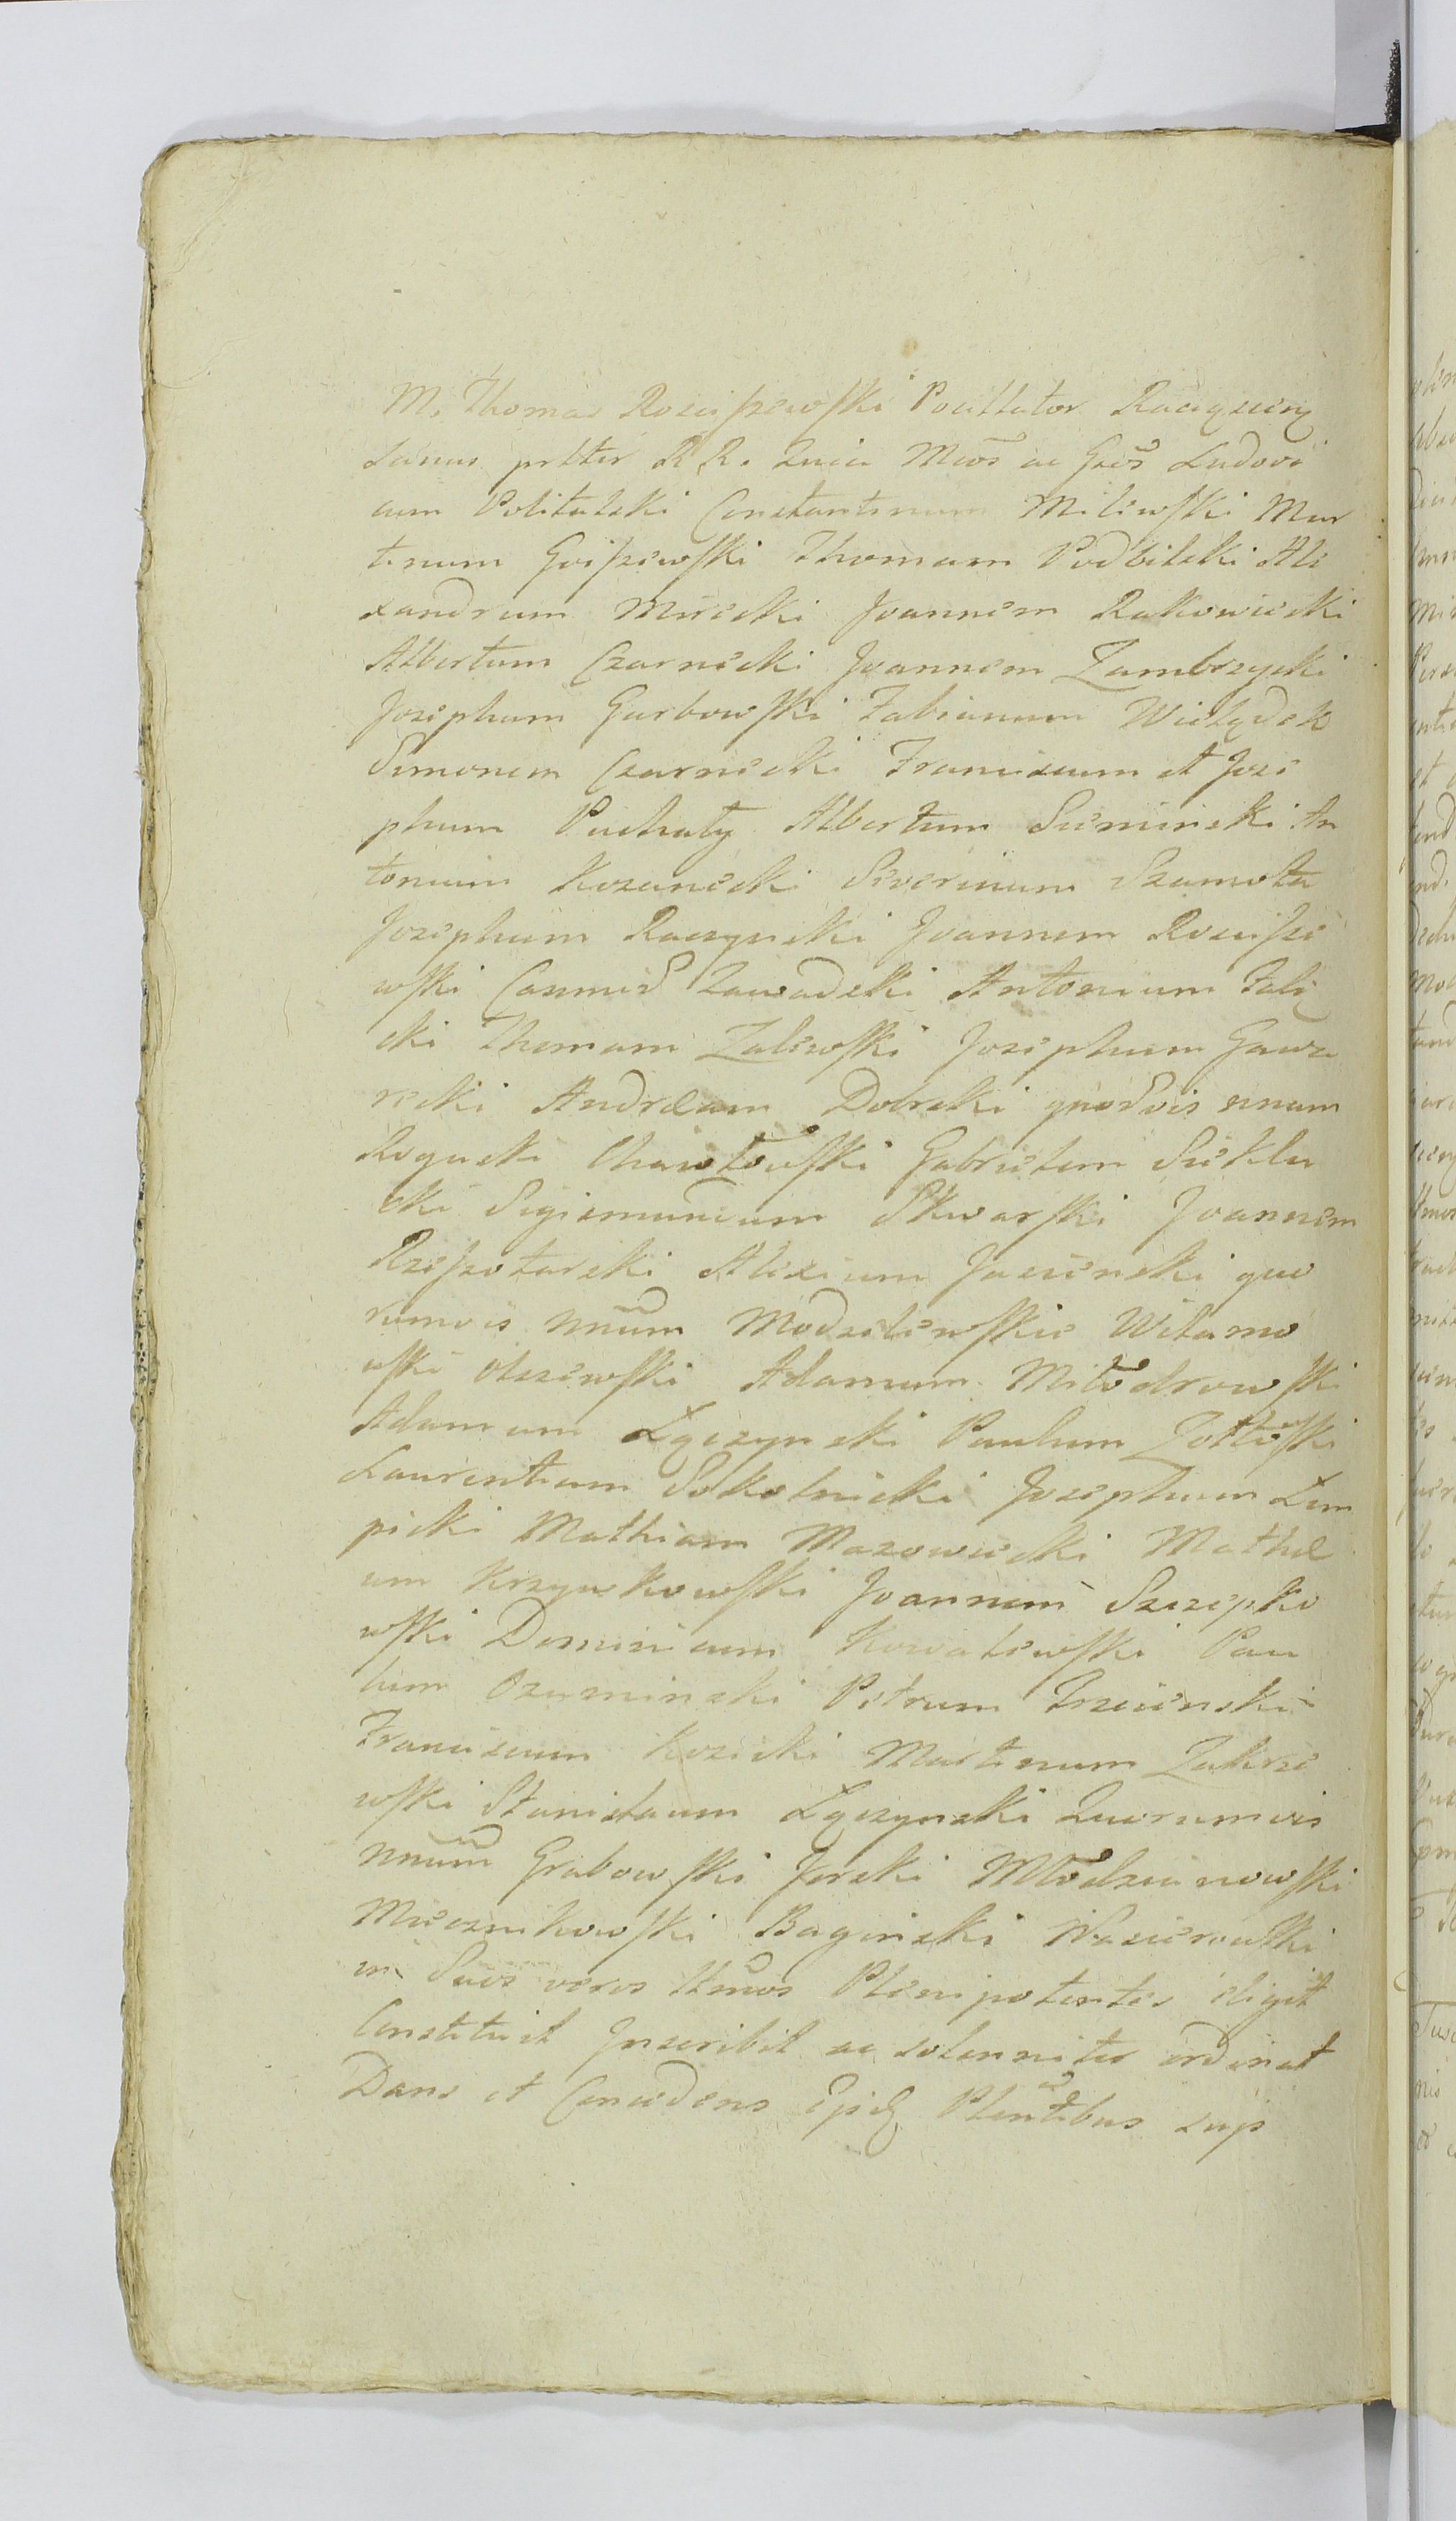 M. Thomas Rosciszewski Pocillator Raciązen
sanus prtter R R. Quia Mcos ac Gsos Ludovi
cum Politalski Constantinum Milewski Mar
tinum Goiszewski Thomam Podbilski Ale
xandrum Mirecki Joannem Rakowiecki
Albertum Czarnecki Joannem Zambrzycki
Josephum Garbowski Fabianum Wielądek
Simonem Czarnecki Franciscum et Jose
phum Puchały Albertum Sieminski An
tonium Kozanecki Severinum Szamota
Josephum Raczynski Joannem Roscisze
wski Casimir Zawadzki Antonium Fali
cki Thomam Zalewski Josephum Gawa
recki Andream Dobrski quosvis unum
Rogucki Chawłowski Gabrielem Siekla
cki Sigismundum Skwarski Joannem
Rzeszotarski Alexium Jasienski quo
rumvis unum Modzelewskie Witamo
wski Olszewski Adamum Miłodrowski
Adamum Łączynski Paulum Zołtowski
Laurentium Sokolnicki Josephum Lem
picki Mathiam Mazowiecki Mathe
um Krzywkowski Joannem Szczepko
wski Dominicum Kowalewski Pau
lum Ozuminski Petrum Trzcinski
Franciscum Kozicki Martinum Zakrze
wski Stanislaum Łączynski Quorumvis
unum Grabowski Jerski Młodzianowski
Miecznikowski Baginski Wasierowski
in Suos veros ltmos Plenipotentes eligit
Constituit Inscribit ac solenniter ordinat
Dans et Concedens Ejsdq Plentibus sup